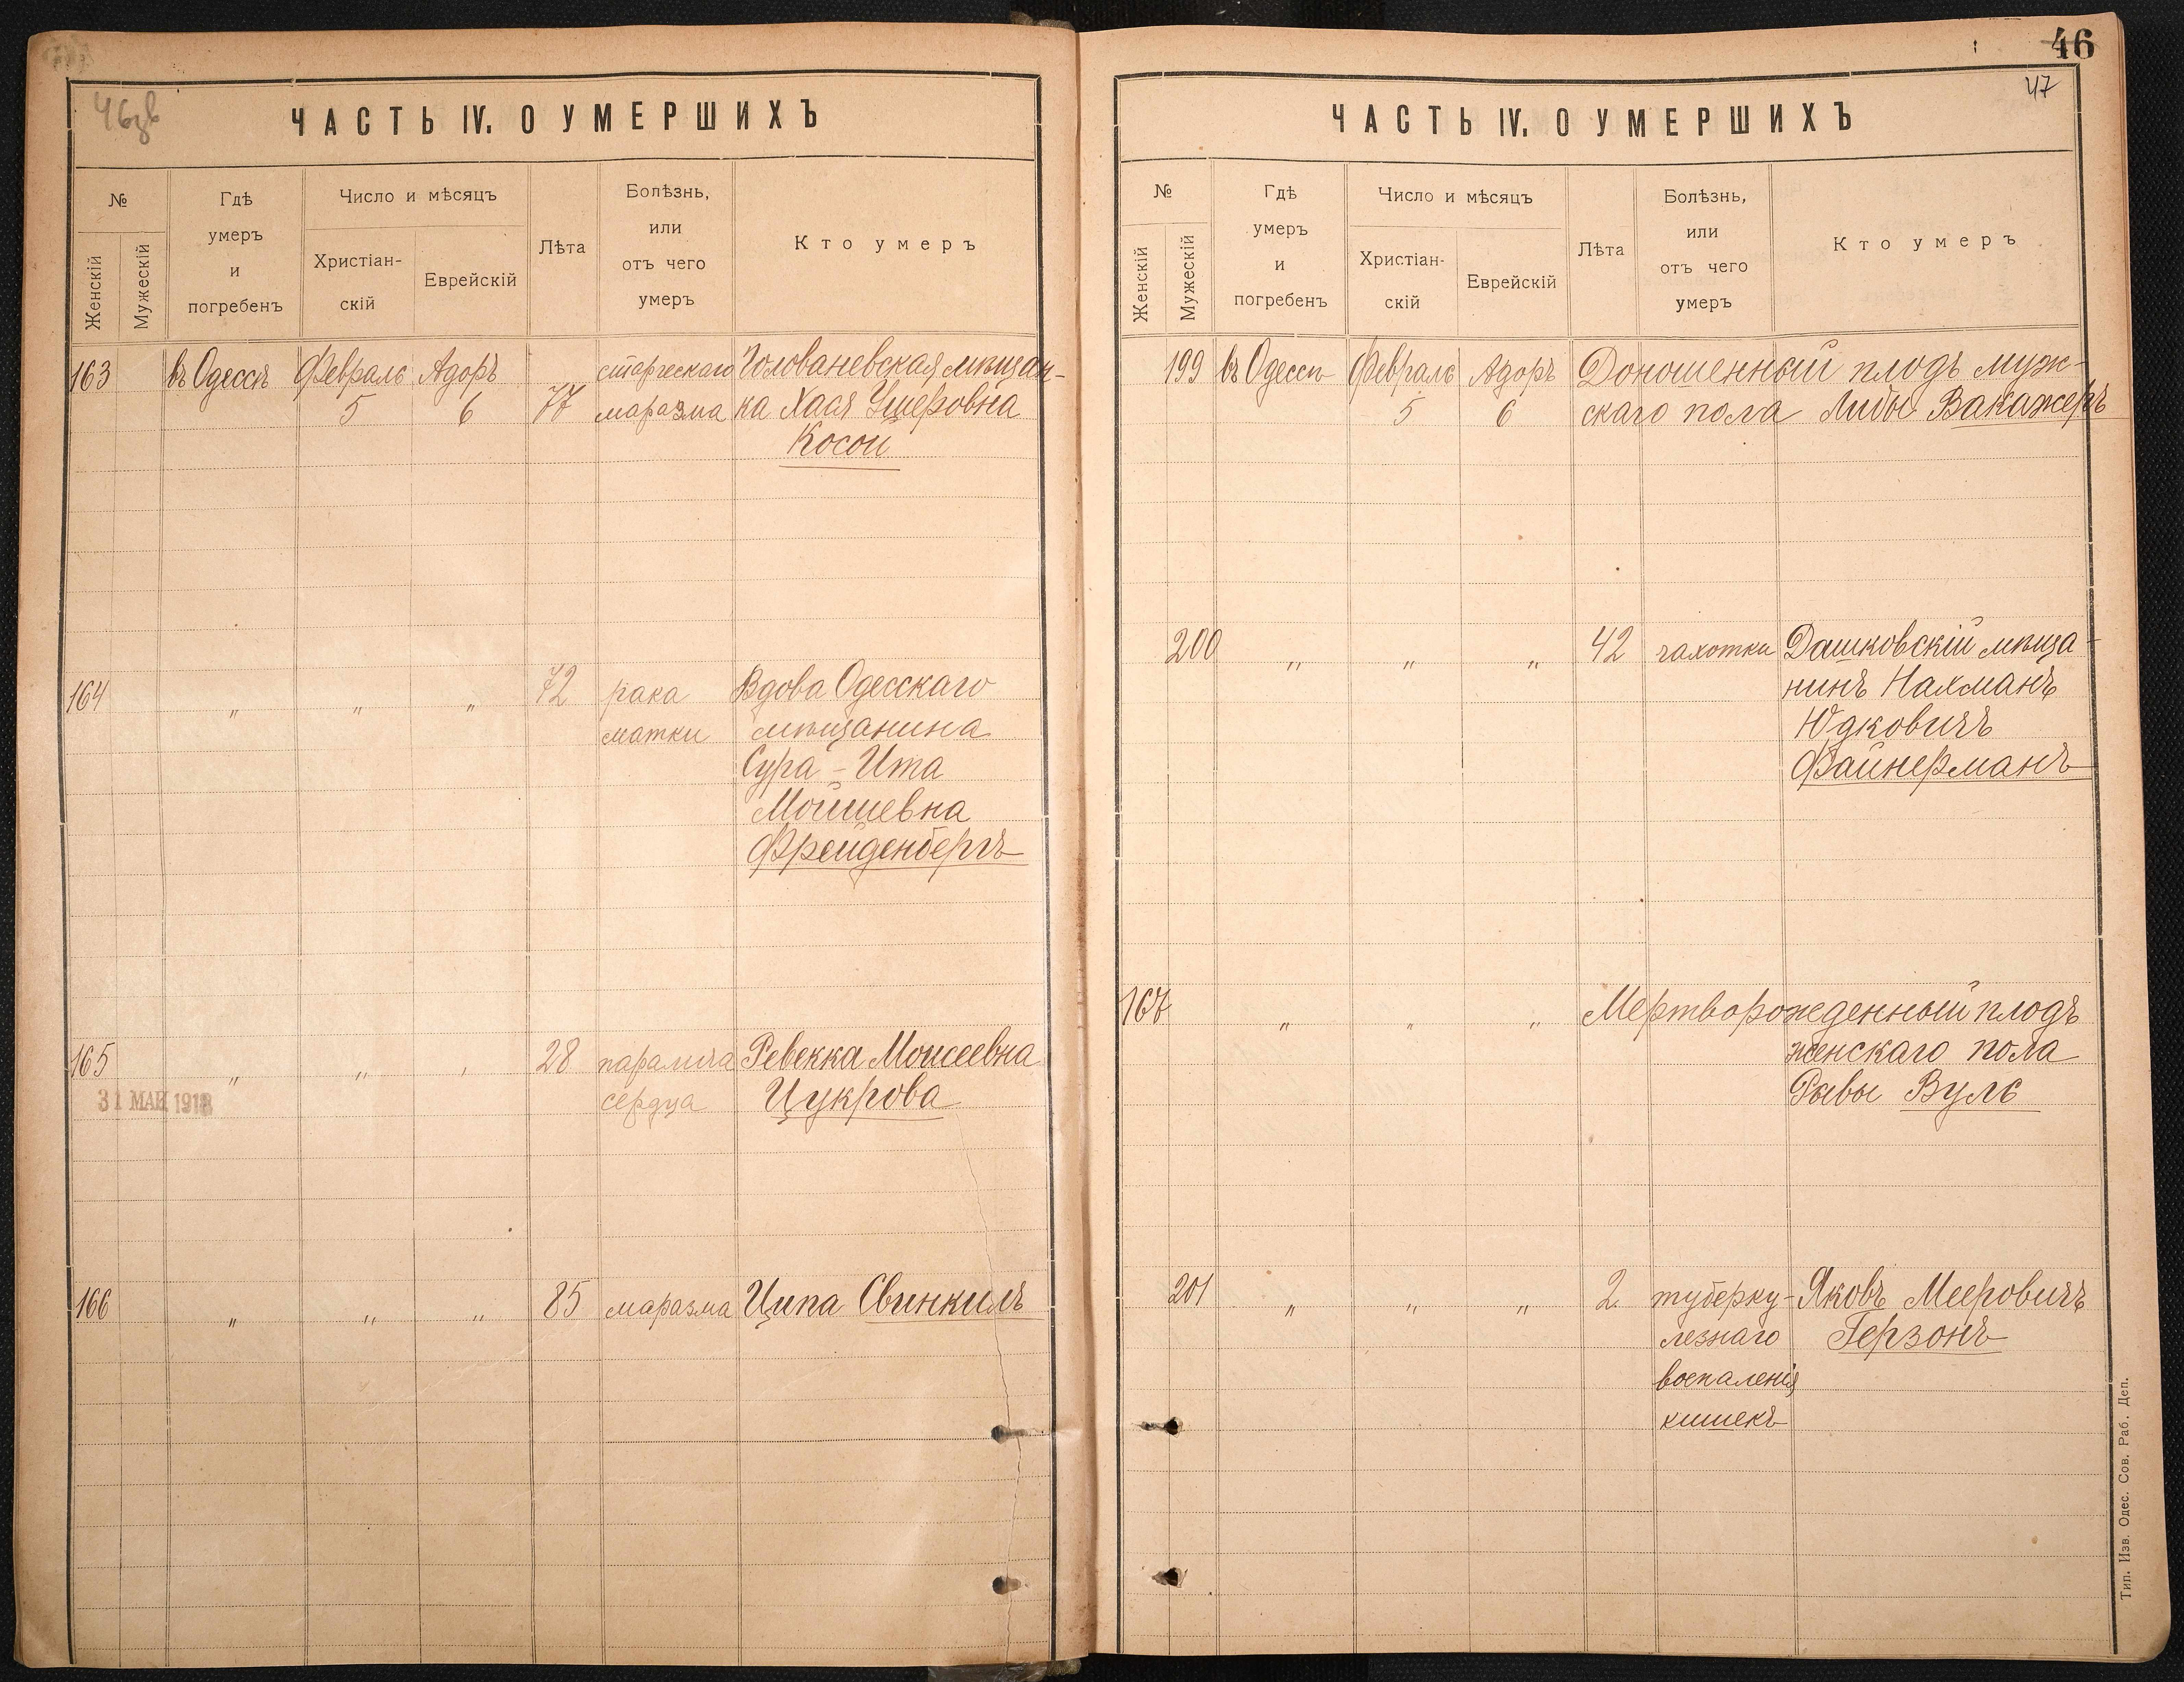 46
47
46зв
ЧАСТЬ IV. О УМЕРШИХЪ
№
Женскій
Мужескій
Гдѣ
умеръ
и
погребенъ
Число и мѣсяцъ
Христіан-
скій
Еврейскій
Лѣта
Болѣзнь,
или
отъ чего
умеръ
Кто умеръ
163 въ Одессѣ Февраль Адоръ старческаго Голованевская мѣщан-
5 6 77 маразма ка Хася Ушеровна
Косой
164 " " " 72 рака Вдова Одесскаго
матки мѣщанина
Сура-Ита
Мойшевна
Фрейденбергъ
165 " " " 28 паралича Ревекка Моисеевна
31 МАЙ 1918 сердца Цукрова
166 " " " 85 маразма Ципа Свинкилъ
ЧАСТЬ IV. О УМЕРШИХЪ
№
Женскій
Мужескій
Гдѣ
умеръ
и
погребенъ
Число и мѣсяцъ
Христіан-
скій
Еврейскій
Лѣта
Болѣзнь,
или
отъ чего
умеръ
Кто умеръ
199 въ Одессѣ Февраль Адоръ Доношенный плодъ муж-
5 6 скаго пола Либы Вакажеръ
200 " " " 42 чахотки Дашковскій мѣща-
нинъ Нахманъ
Юдковичъ
Файнерманъ
167 " " " Мертворожденный плодъ
женскаго пола
Рывы Вуль
201 " " " 2 туберку- Яковъ Мееровичъ
лезнаго Герзонъ
воспаленія
кишекъ
Тип. Изв. Одес. Сов. Раб. Деп.